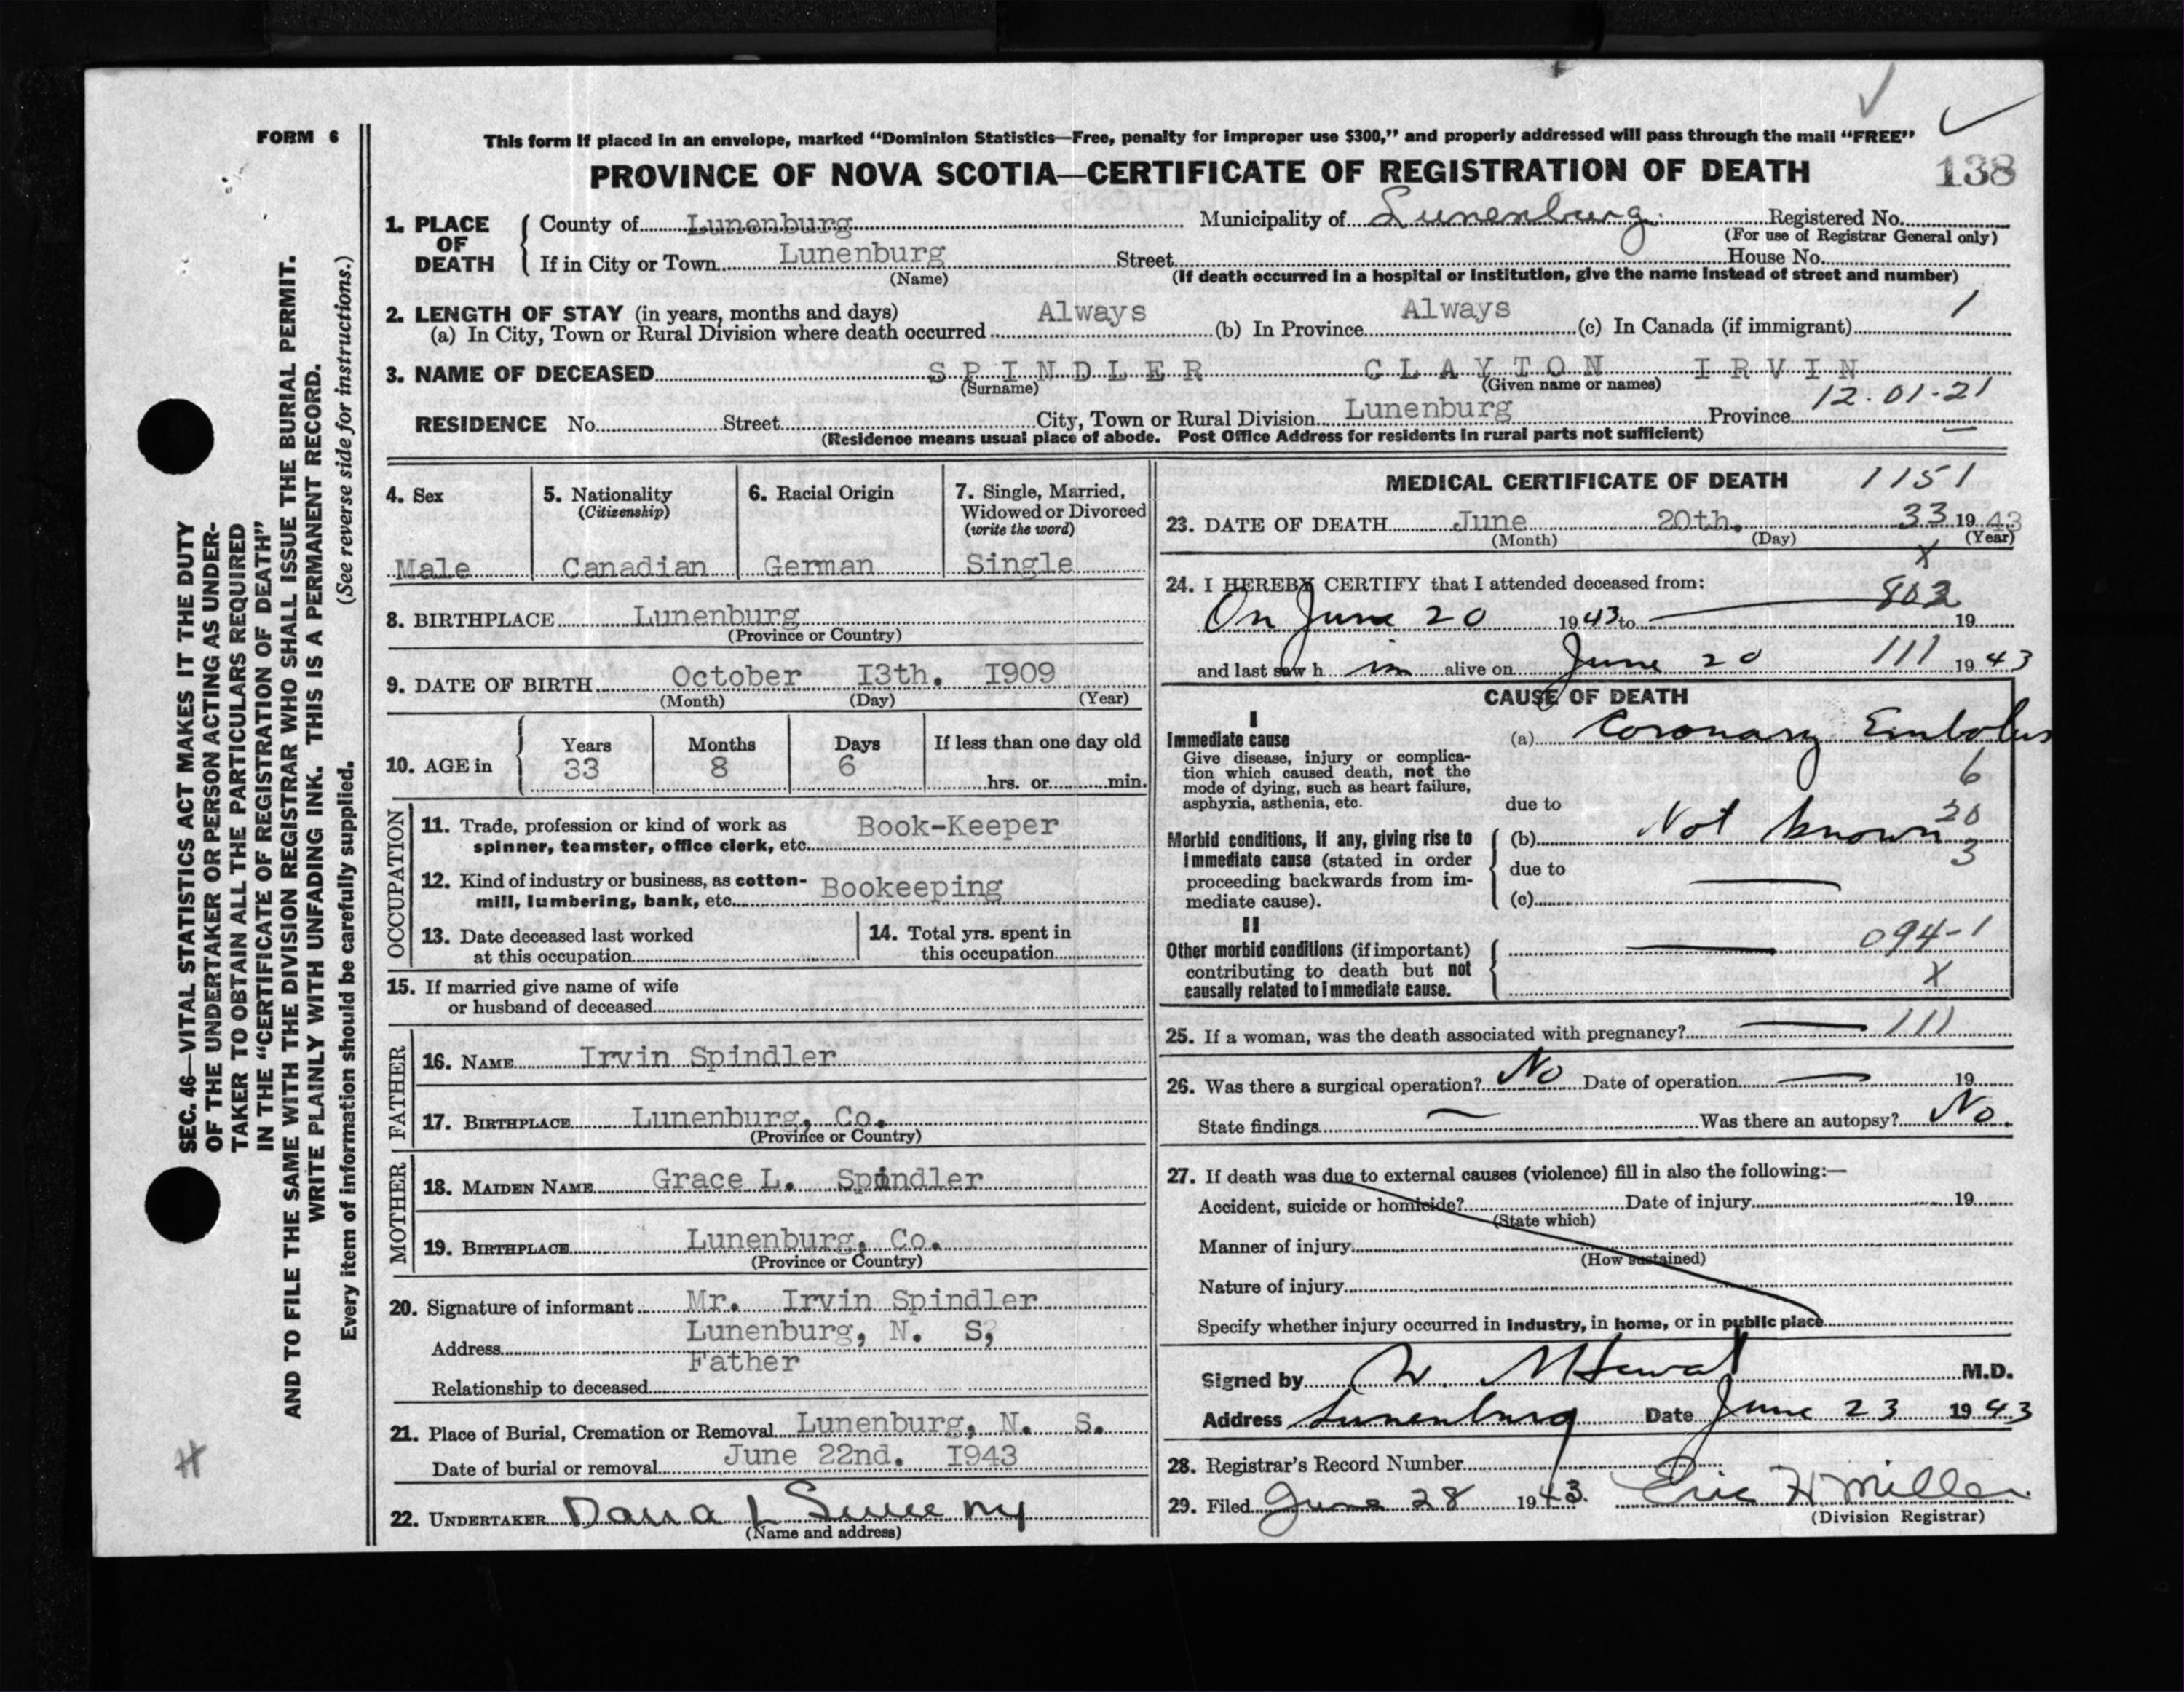 FORM 6
This form if placed in an envelope, marked “Dominion Statistics—Free, penalty for improper use $300,” and properly addressed will pass through the mail “FREE”
PROVINCE OF NOVA SCOTIA—CERTIFICATE OF REGISTRATION OF DEATH 138
1. PLACE OF DEATH
County of Lunenburg Municipality of Lunenburg. Registered No.
(For use of Registrar General only)
If in City or Town Lunenburg Street House No.
(Name) (If death occurred in a hospital or institution, give the name instead of street and number)
2. LENGTH OF STAY (in years, months and days)
(a) In City, Town or Rural Division where death occurred Always (b) In Province Always (c) In Canada (if immigrant) 1
3. NAME OF DECEASED SPINDLER CLAYTON IRVIN
(Surname) (Given name or names)
12.01-21
RESIDENCE No. Street City, Town or Rural Division Lunenburg Province
(Residence means usual place of abode. Post Office Address for residents in rural parts not sufficient)
4. Sex
Male
5. Nationality
(Citizenship)
Canadian
6. Racial Origin
German
7. Single, Married,
Widowed or Divorced
(write the word)
Single
8. BIRTHPLACE Lunenburg
(Province or Country)
9. DATE OF BIRTH October I3th. I909
(Month) (Day) (Year)
10. AGE in
Years Months Days If less than one day old
33 8 6 hrs. or min.
OCCUPATION
11. Trade, profession or kind of work as
spinner, teamster, office clerk, etc. Book-Keeper
12. Kind of industry or business, as cotton-
mill, lumbering, bank, etc. Bookeeping
13. Date deceased last worked
at this occupation
14. Total yrs. spent in
this occupation
15. If married give name of wife
or husband of deceased
FATHER
16. NAME Irvin Spindler
17. BIRTHPLACE Lunenburg, Co.
(Province or Country)
MOTHER
18. MAIDEN NAME Grace L. Spindler
19. BIRTHPLACE Lunenburg, Co.
(Province or Country)
20. Signature of informant Mr. Irvin Spindler
Address Lunenburg, N. S,
Relationship to deceased Father
21. Place of Burial, Cremation or Removal Lunenburg, N. S.
Date of burial or removal June 22nd. I943
22. UNDERTAKER Dana L Sweeny
(Name and address)
MEDICAL CERTIFICATE OF DEATH 1151
23. DATE OF DEATH June 20th. 33 1943
(Month) (Day) (Year)
X
24. I HEREBY CERTIFY that I attended deceased from:
803
On June 20 1943 to 19
and last saw h im alive on June 20 111 1943
CAUSE OF DEATH
I
Immediate cause
Give disease, injury or complica-
tion which caused death, not the
mode of dying, such as heart failure,
asphyxia, asthenia, etc.
(a) Coronary Embolus
6
due to
20
Morbid conditions, if any, giving rise to
immediate cause (stated in order
proceeding backwards from im-
mediate cause).
(b) Not known
3
due to
(c)
II
Other morbid conditions (if important)
contributing to death but not
causally related to immediate cause.
094-1
X
25. If a woman, was the death associated with pregnancy? 111
26. Was there a surgical operation? No Date of operation 19
State findings Was there an autopsy? No.
27. If death was due to external causes (violence) fill in also the following:—
Accident, suicide or homicide? Date of injury 19
(State which)
Manner of injury
(How sustained)
Nature of injury
Specify whether injury occurred in industry, in home, or in public place
Signed by W. M.D.
Address Lunenburg Date June 23 1943
28. Registrar's Record Number
29. Filed June 28 1943. Eric H Miller
(Division Registrar)
SEC. 46—VITAL STATISTICS ACT MAKES IT THE DUTY
OF THE UNDERTAKER OR PERSON ACTING AS UNDER-
TAKER TO OBTAIN ALL THE PARTICULARS REQUIRED
IN THE “CERTIFICATE OF REGISTRATION OF DEATH”
AND TO FILE THE SAME WITH THE DIVISION REGISTRAR WHO SHALL ISSUE THE BURIAL PERMIT.
WRITE PLAINLY WITH UNFADING INK. THIS IS A PERMANENT RECORD.
Every item of information should be carefully supplied. (See reverse side for instructions.)
H